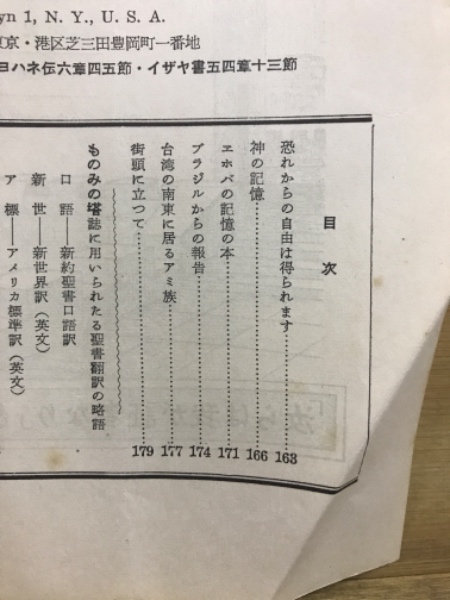 yn 1, N. Y., U. S. A.
東京・港区芝三田豊岡町一番地
ヨハネ伝六章四五節・イザヤ書五四章十三節
目次
恐れからの自由は得られます 163
神の記憶 166
エホバの記憶の本 171
ブラジルからの報告 174
台湾の南東に居るアミ族 177
街頭に立つて 179
ものみの塔誌に用いられたる聖書翻訳の略語
口語――新約聖書口語訳
新世――新世界訳(英文)
ア標――アメリカ標準訳(英文)